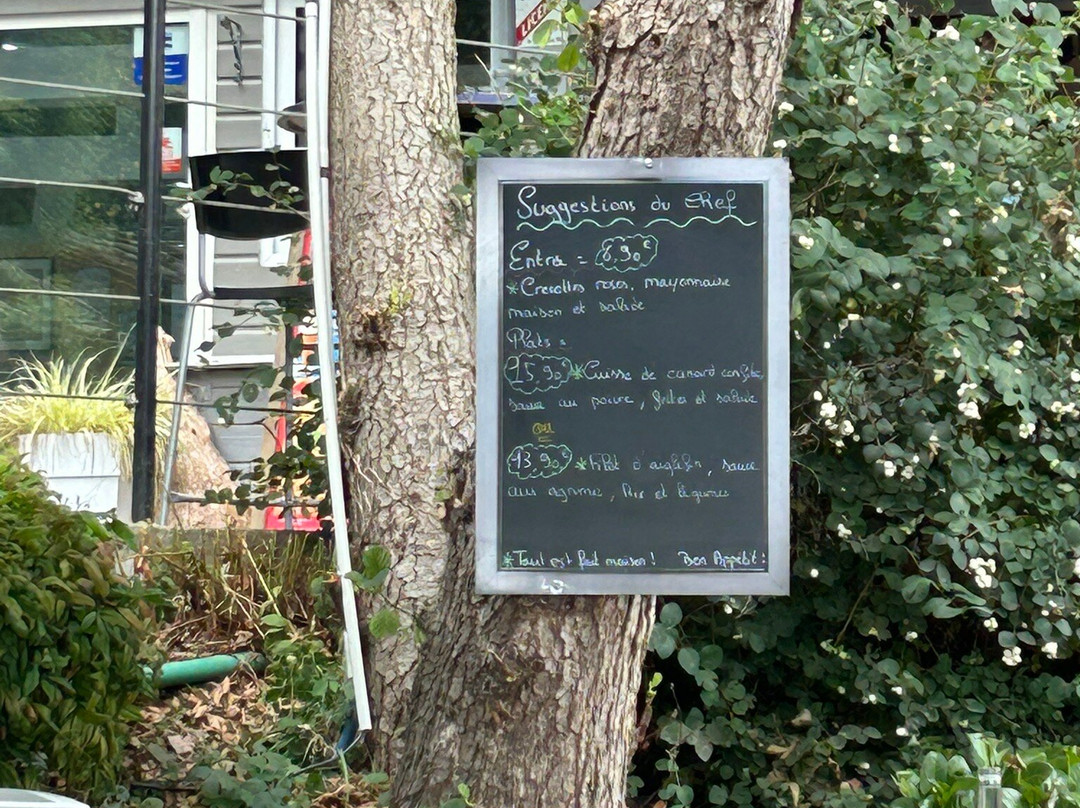 Suggestions du chef
Entrée = 6,90€
*Crevettes roses, mayonnaise
maison et salade
Plats =
15,90€ *Cuisse de canard confite,
sauce au poivre, frites et salade
ou
13,90€ *Filet d'aiglefin, sauce
aux agrumes, Riz et légumes
*Tout est fait maison! Bon Appétit!